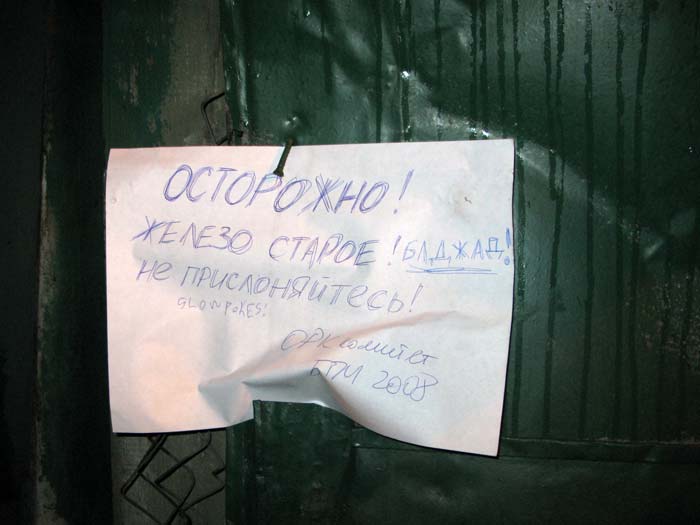 ОСТОРОЖНО!
ЖЕЛЕЗО СТАРОЕ! БАДЖАД!
НЕ ПРИСЛОНЯЙТЕСЬ!
GLOWPOKES!
ОРКкомитет
БГМ 2008